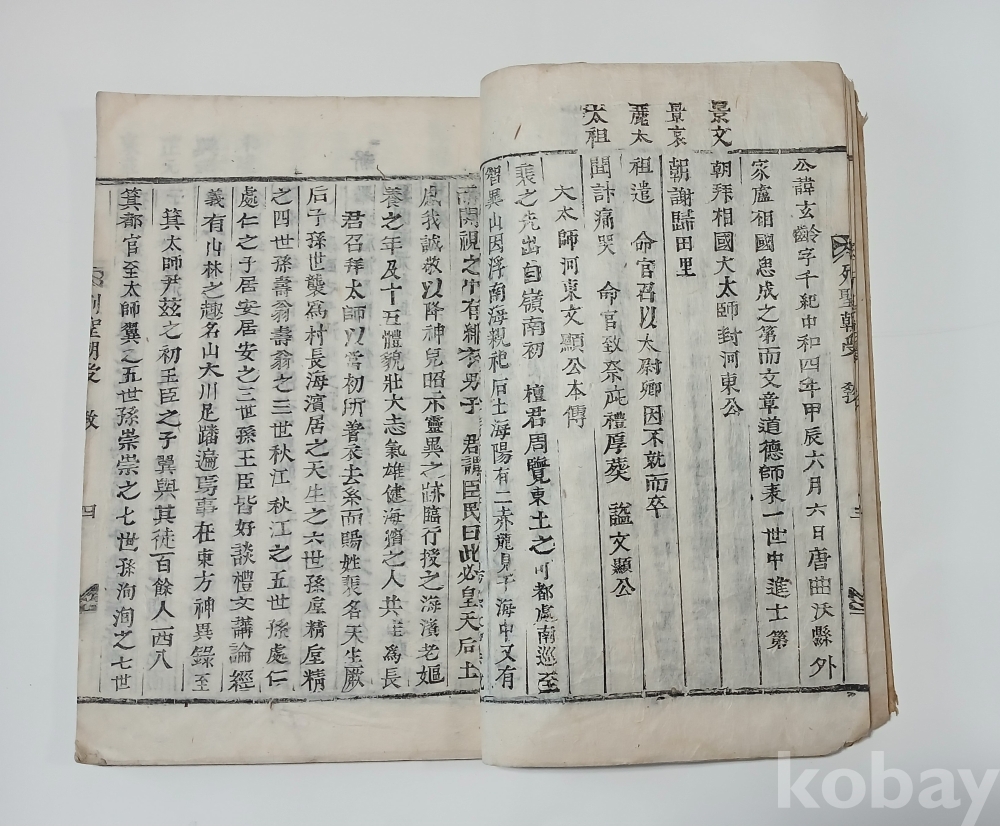 公諱玄齡字千紀中和四年甲辰六月六日唐曲沃縣外
家廬相國忠成之第而文章道德師表一世中進士第
景文
朝拜相國大太師封河東公
景哀
朝謝歸田里
麗太
祖遣 命官召以太尉卿因不就而卒
太祖
聞訃痛哭 命官致祭庀禮厚葬 諡文顯公
大太師河東文顯公本傳
裴之先出自嶺南初 檀君周覽東土之川都處南巡至
智異山因浮南海親祀后土海陽有二赤龍見于海中又有
開視之中有緋衣男子 君謂臣民曰此必皇天后土
感我誠敬以降神兒昭示靈異之跡臨行授之海濱老嫗
養之年及十五體貌壯大志氣雄健海濱之人共注爲長
君召拜太師以當初所着衣去糸而賜姓裴名天生厥
后子孫世襲爲村長海濱居之天生之六世孫屋精屋精
之四世孫壽翁壽翁之三世秋江秋江之五世孫處仁
處仁之子居安居安之三世孫王臣皆好談禮文講論經
義有山林之趣名山大川足踏遍焉事在東方神異錄至
箕太師尹茲之初王臣之子翼與其徒百餘人西入
箕都官至太師翼之五世孫崇崇之七世孫洵洵之七世
列聖朝受敎
三
列聖朝受敎
四
kobay